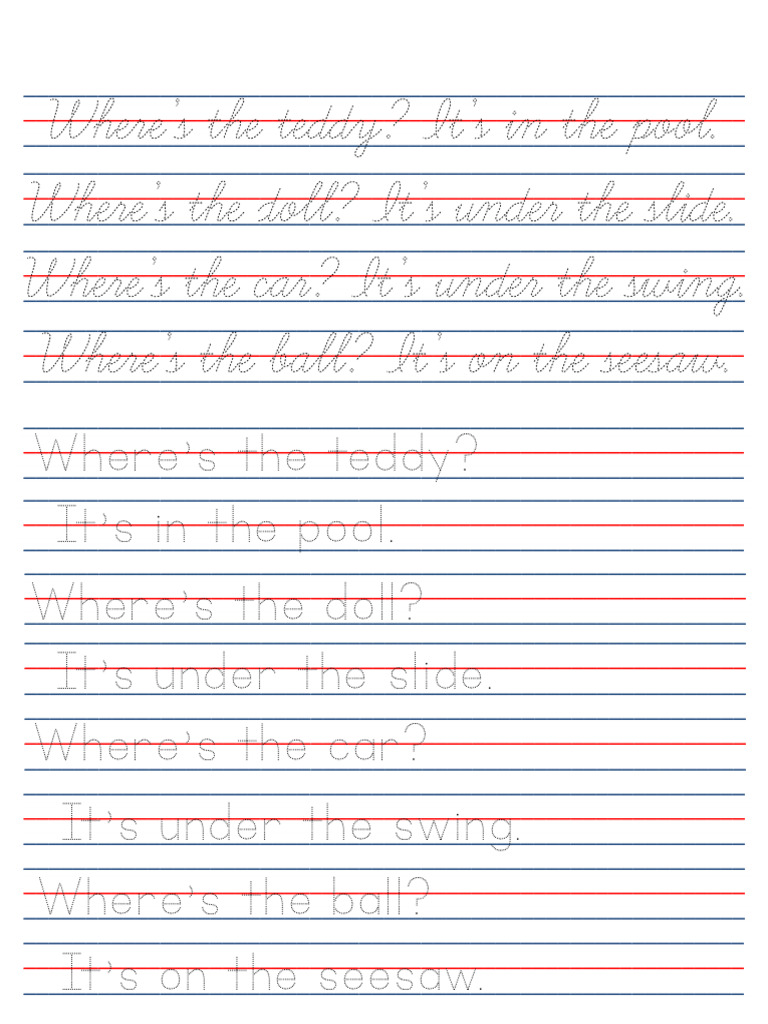 Where's the teddy? It's in the pool.
Where's the doll? It's under the slide.
Where's the car? It's under the swing.
Where's the ball? It's on the seesaw.
Where's the teddy?
It's in the pool.
Where's the doll?
It's under the slide.
Where's the car?
It's under the swing.
Where's the ball?
It's on the seesaw.